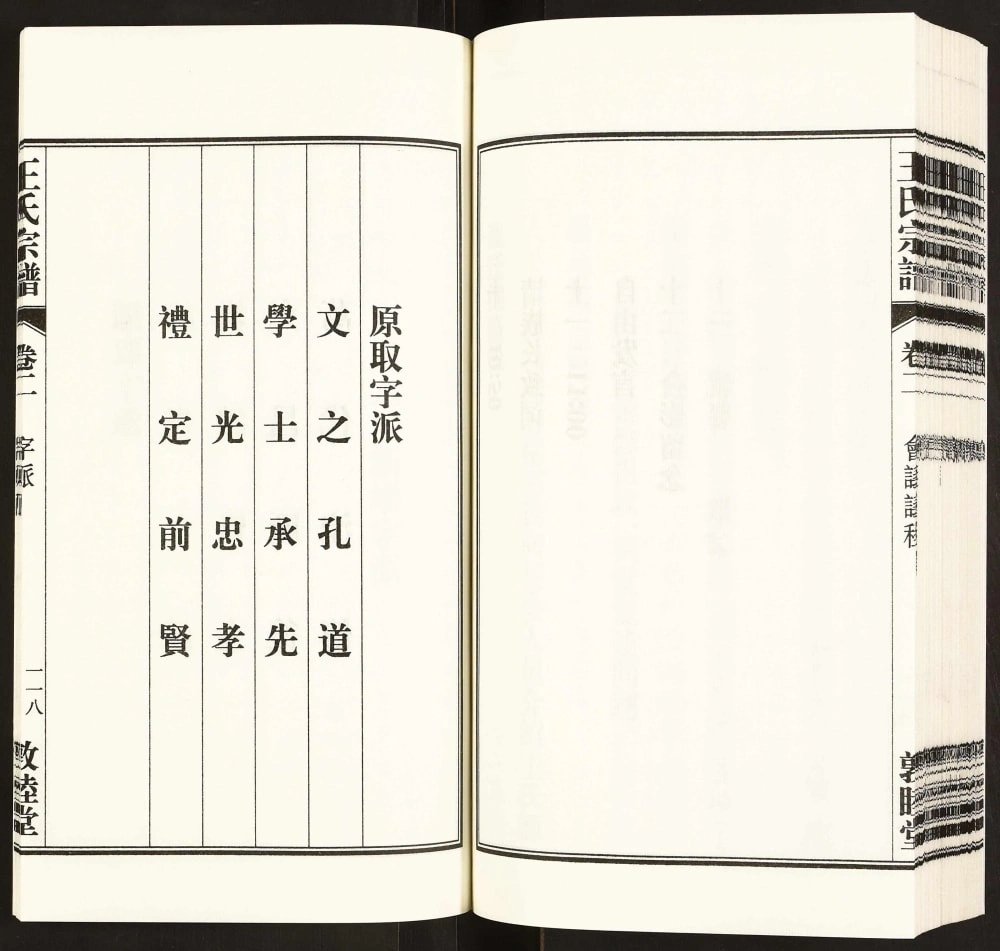 王氏宗譜
卷二
原取字派
文之孔道
學士承先
世光忠孝
禮定前賢
王氏宗譜
卷二
字派
一一八
敦睦堂